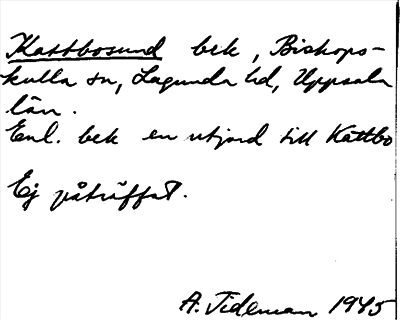 Kattbosund bek, Biskops-
kulla sn, Lagunda hd, Uppsala
län.
Enl. bek en utjord till Kattbo
Ej påträffat.
A. Tideman 1945